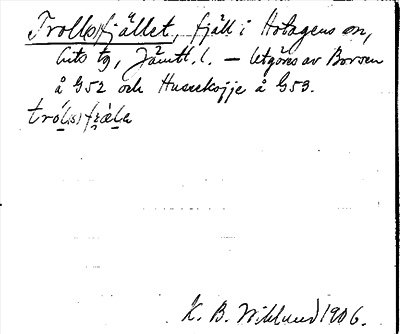 Troll(s)fjället, fjäll i Hotagens sn,
Lits tg, Jämtl. l. — Utgöres av Borsen
å G52 och Huseksjje å G53.
tról(s)fjæla
K. B. Wiklund 1906.